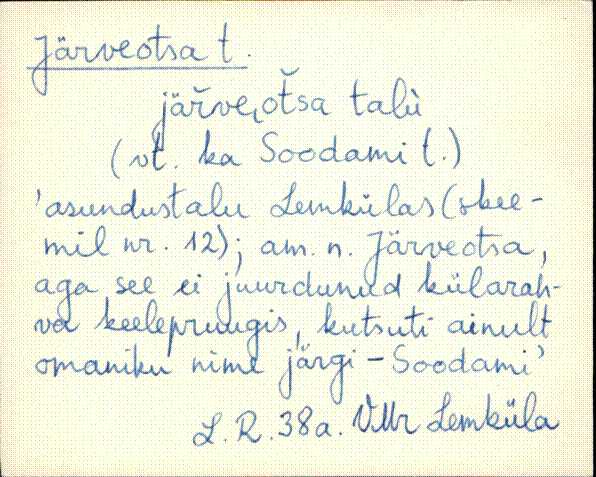 Järveotsa t.
jäřve‿oťsa talù
(vt. ka Soodami t.)
'asundustalu Lemkülas (skee-
mil nr. 12); am. n. Järveotsa,
aga see ei juurdunud külarah-
va keelepruugis, kutsuti ainult
omaniku nime järgi - Soodami'
L. R. 38a. VMr Lemküla